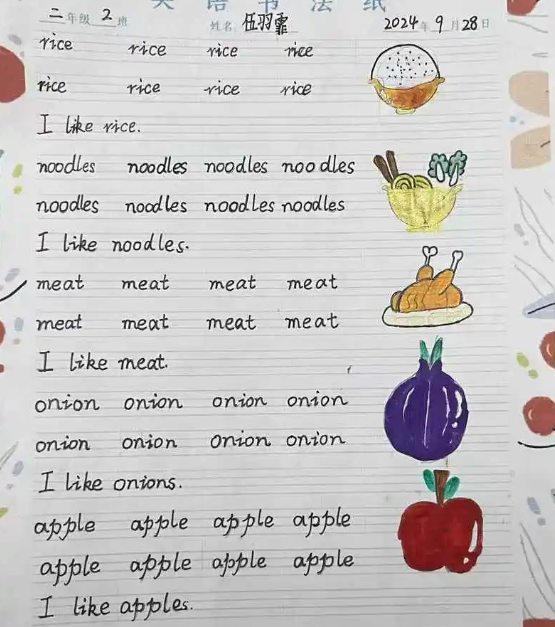 英语书法纸
二年级2班 姓名 伍羽霏 2024年9月28日
rice rice rice rice
rice rice rice rice
I like rice.
noodles noodles noodles noodles
noodles noodles noodles noodles
I like noodles.
meat meat meat meat
meat meat meat meat
I like meat.
onion onion onion onion
onion onion onion onion
I like onions.
apple apple apple apple
apple apple apple apple
I like apples.